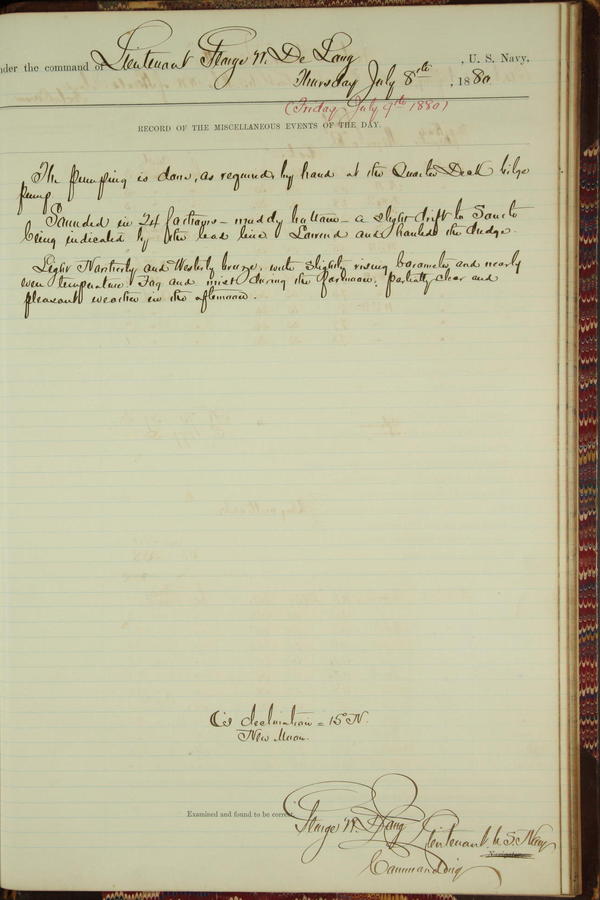 nder the command of Lieutenant George W. De Long, U. S. Navy,
Thursday July 8th, 1880
(Friday July 9th 1880)
RECORD OF THE MISCELLANEOUS EVENTS OF THE DAY.
The pumping is done, as required, by hand at the Quarter Deck bilge
pump.
Sounded in 24 fathoms - muddy bottom - a slight drift to South
being indicated by the lead line. Lowered and hauled the dredge.
Light Northerly and Westerly breeze, with slightly rising barometer and nearly
even temperature. Fog and mist during the forenoon, partially clear and
pleasant weather in the afternoon.
☾'s declination = 15° N.
New Moon.
Examined and found to be correct.
George W. De Long Lieutenant U.S. Navy
Navigator.
Commanding